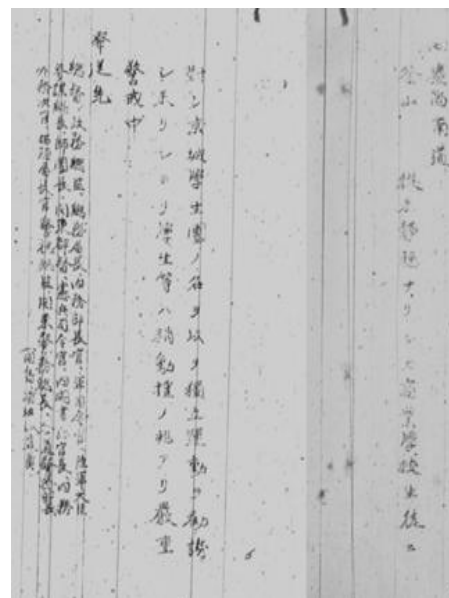 七慶尚南道
釜山 概シテ静穏ナリシモ商業學校生徒ニ
對シ京城學生團ノ名ヲ以テ獨立運動ヲ勸誘
シ来リシヨリ學生等ハ稍動搖ノ兆アリ嚴重
警戒中
發送先
總督、政務總監、總務局長、内務部長官、軍司令官、陸軍大臣
参謀總長、師團長、関東都督、憲兵司令官、内閣書記官長、内務
外務次官、拓殖局長官、警視總監、関東警務総長、